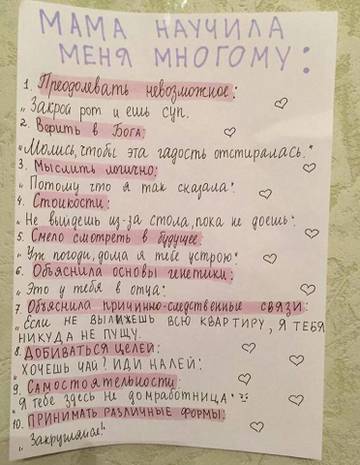 МАМА НАУЧИЛА
МЕНЯ МНОГОМУ:
1. Преодолевать невозможное:
„Закрой рот и ешь суп.
2. Верить в Бога:
„Молись, чтобы эта гадость отстиралась."
3. Мыслить логично:
„Потому что я так сказала".
4. Стойкости:
„Не выйдешь из-за стола, пока не доешь".
5. Смело смотреть в будущее
„Уж погоди, дома я тебе устрою".
6. Объяснила основы генетики:
„Это у тебя в отца".
7. Объяснила причинно-следственные связи:
„Если не вылижешь всю квартиру, я тебя
никуда не пущу.
8. ДОБИВАТЬСЯ ЦЕЛЕЙ:
ХОЧЕШЬ ЧАЙ? ИДИ НАЛЕЙ.
9. САМОСТОЯТЕЛЬНОСТИ:
„Я тебе здесь не домработница".
10. ПРИНИМАТЬ РАЗЛИЧНЫЕ ФОРМЫ:
„Закругляйся!"